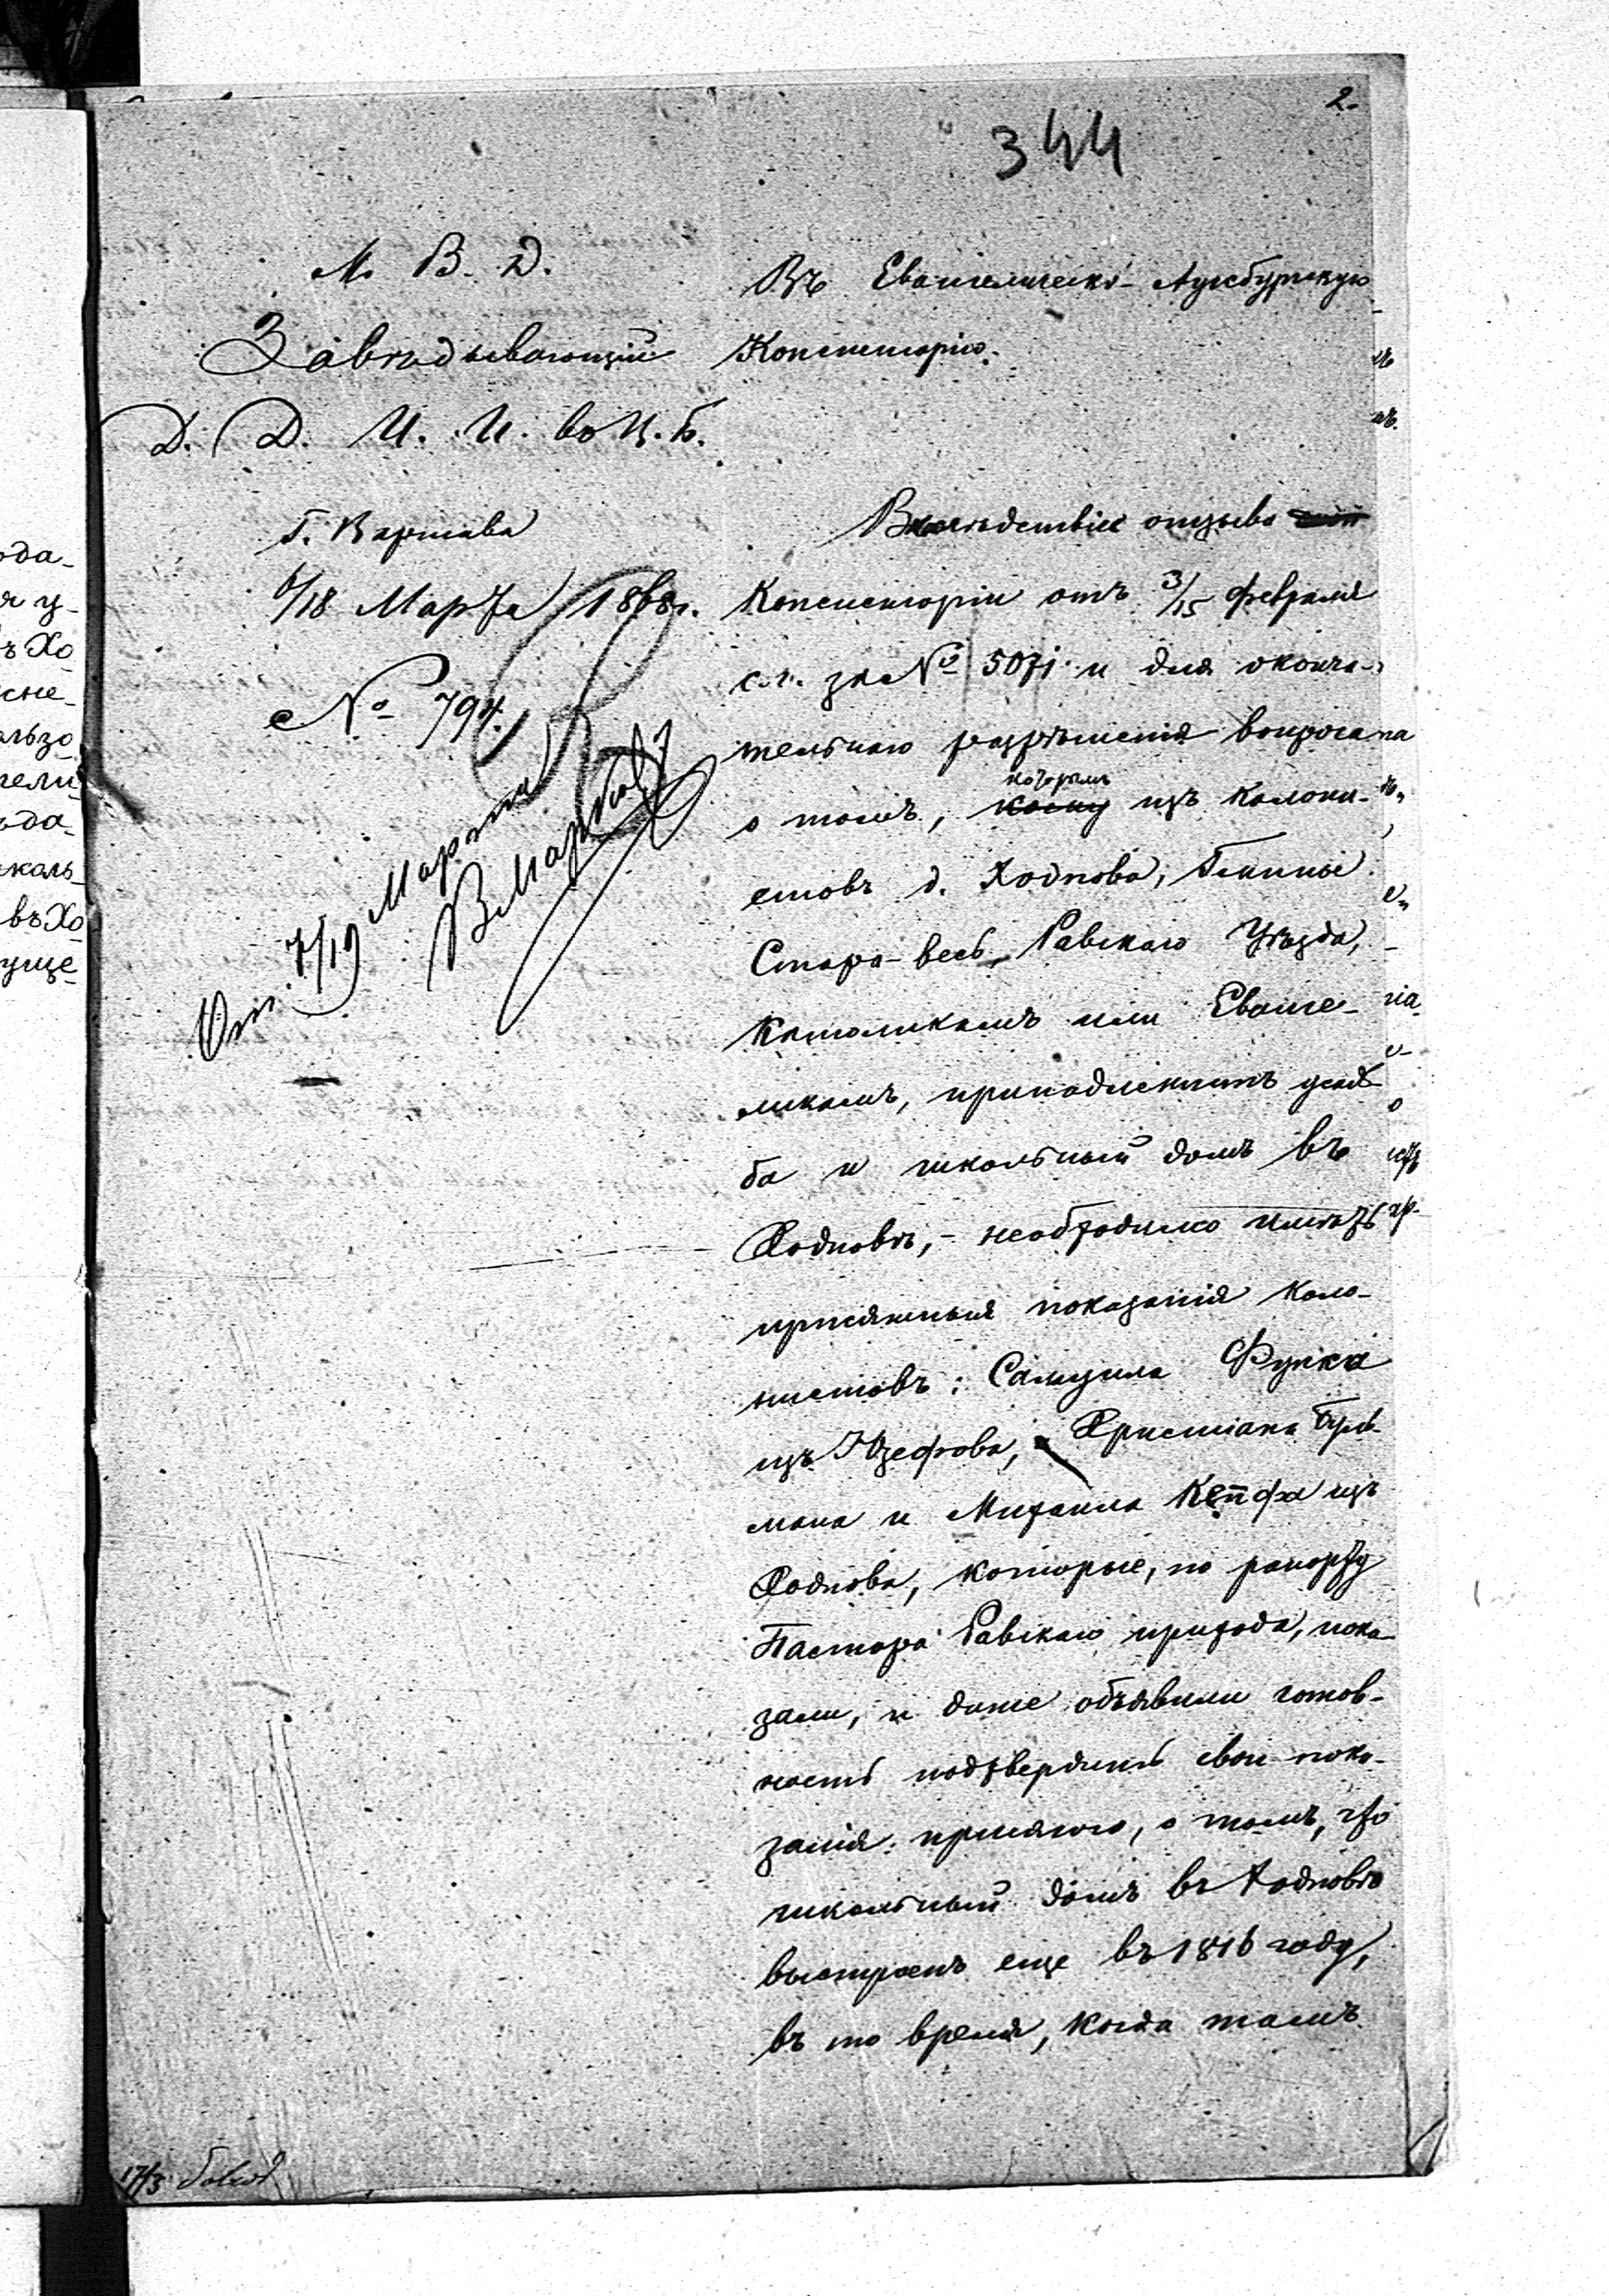 2.
344
М. В. Д.
Завѣдывающій
Д. Д. И. И. въ Ц. П.
Г. Варшава
6/18 Марта 1868 г.
№ 794.
От. 7/19 Марта
Въ Евангелическо-Аугсбургскую
Консисторію.
Вслѣдствіе отзыва
Консисторіи отъ 3/15 февраля
с.г. за № 5071 и для оконча-
тельнаго разрѣшенія вопроса
которымъ
о томъ, кому изъ колони-
стовъ д. Ходнова,
Стара-весь, Равскаго Уѣзда,
Католикамъ или Еванге-
ликамъ, принадлежитъ усадь
ба и школьный домъ въ
Ходновѣ,- необходимо имѣть
присяжныя показанія коло-
нистовъ: Самуила Функа
изъ Юзефова, Христіана Буль-
мана и Михаила Кепфа изъ
Ходнова, которые, по рапорту
Пастора Равскаго прихода, пока-
зали, и даже объявили готов-
ность подтвердить свои пока-
занія присягою, о томъ, что
школьный домъ въ Ходновѣ
выстроенъ еще въ 1816 году,
въ то время, когда тамъ
17/3
ода-
ъ Хо
сне-
ользо
гели
ъда-
коль-
въ Хо
уще-